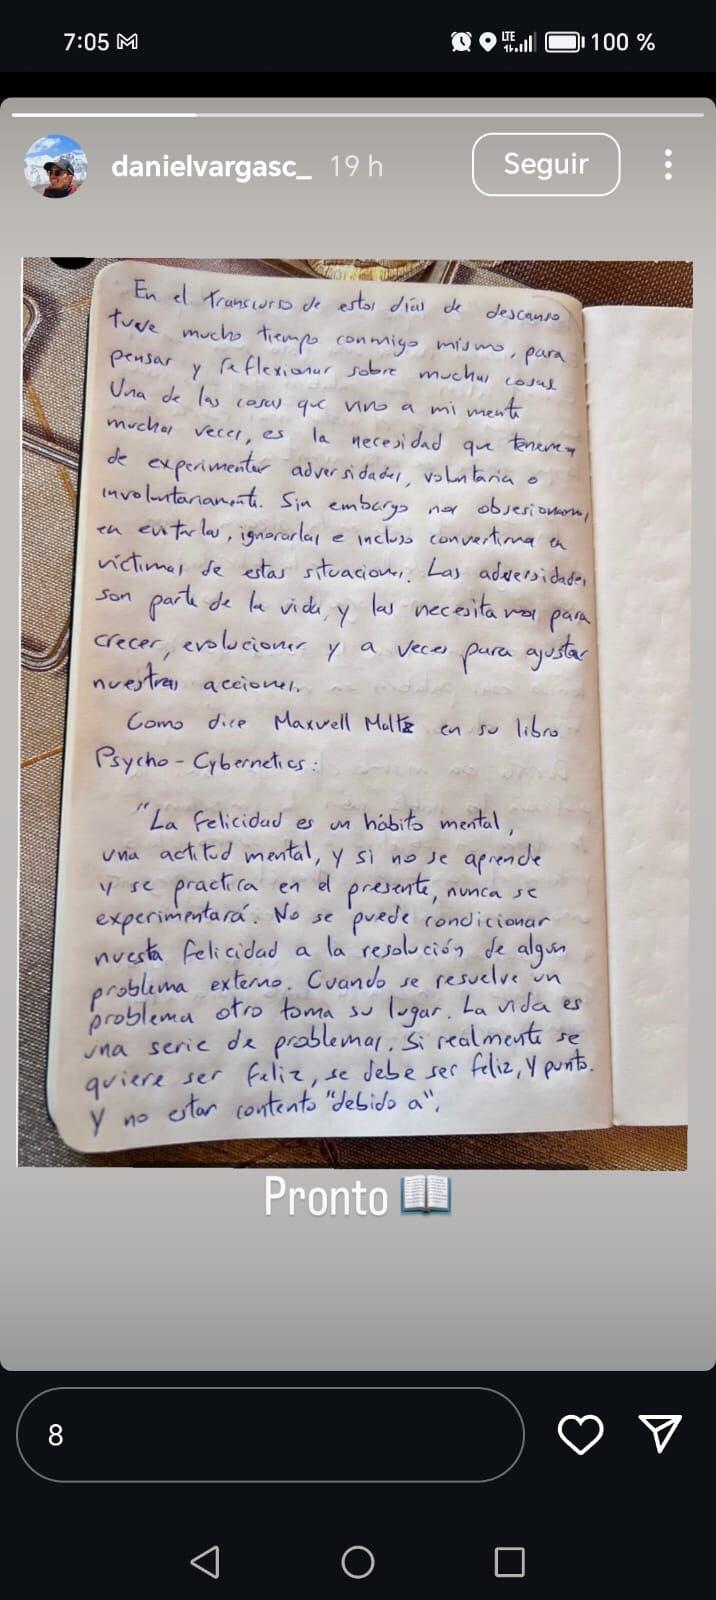 7:05
LTE
100 %
danielvargasc_ 19 h
Seguir
En el transcurso de estos días de descanso
tuve mucho tiempo conmigo mismo, para
pensar y reflexionar sobre muchas cosas.
Una de las cosas que vino a mi mente
muchas veces, es la necesidad que tenemos
de experimentar adversidades, voluntaria o
involuntariamente. Sin embargo nos obsesionamos
en evitarlas, ignorarlas e incluso convertirnos en
víctimas de estas situaciones. Las adversidades
son parte de la vida, y las necesitamos para
crecer, evolucionar y a veces para ajustar
nuestras acciones.
Como dice Maxwell Maltz en su libro
Psycho-Cybernetics:
"La felicidad es un hábito mental,
una actitud mental, y si no se aprende
y se practica en el presente, nunca se
experimentará. No se puede condicionar
nuesta felicidad a la resolución de algun
problema externo. Cuando se resuelve un
problema otro toma su lugar. La vida es
una serie de problemas. Si realmente se
quiere ser feliz, se debe ser feliz, y punto.
Y no estar contento "debido a".
Pronto 📖
8